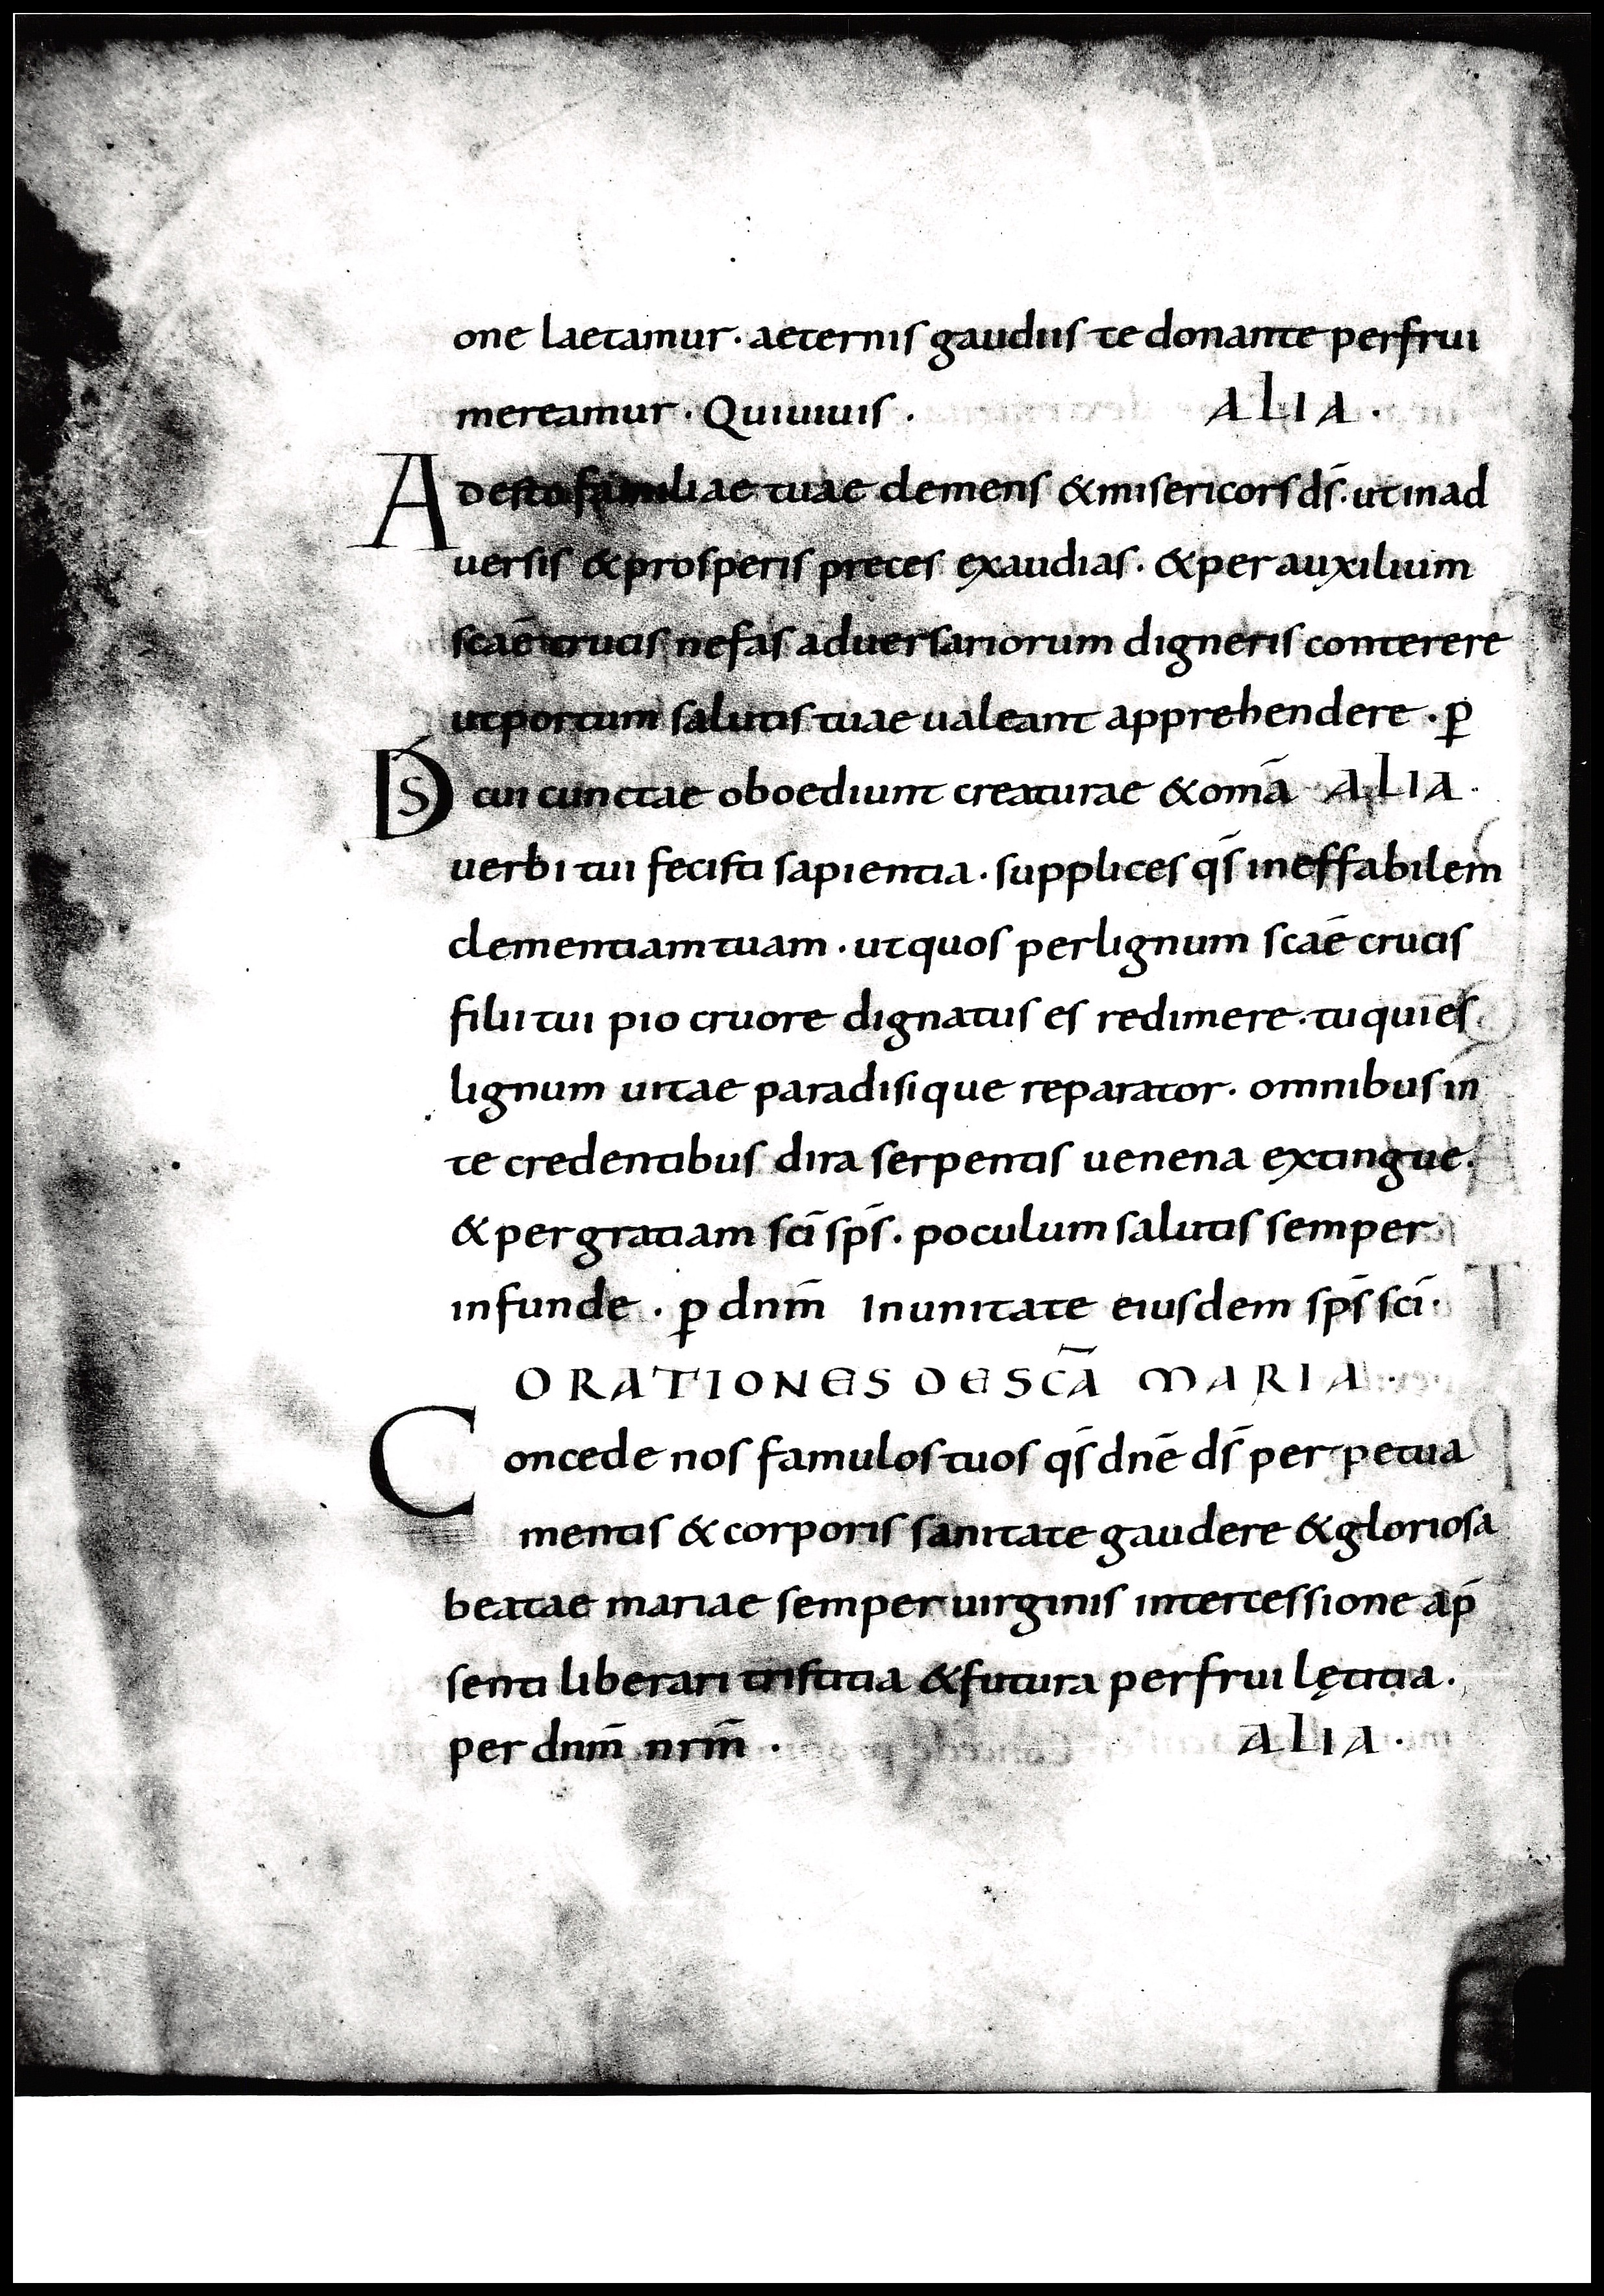 one laetamur · aeternis gaudiis te donante perfrui
mereamur · Quiuiuis · ALIA ·
Adesto familiae tuae clemens & misericors d̄s · ut in ad
uersis & prosperis preces exaudias · & per auxilium
scāe crucis nefas aduersariorum digneris conterere
ut portum salutis tuae ualeant apprehendere · p̄
D̄s cui cunctae oboediunt creaturae & omā ALIA ·
uerbi tui fecisti sapientia · supplices qs̄ ineffabilem
clementiam tuam · ut quos per lignum scāe crucis
filii tui pio cruore dignatus es redimere · tu qui es
lignum uitae paradisique reparator · omnibus in
te credentibus dira serpentis uenena extingue ·
& per gratiam scī sps̄ · poculum salutis semper
infunde · p̄ dnm̄ In unitate eiusdem sps̄ scī ·
ORATIONES DE SCĀ MARIA ·
Concede nos famulos tuos qs̄ dnē ds̄ perpetua
mentis & corporis sanitate gaudere & gloriosa
beatae mariae semper uirginis intercessione a p̄
senti liberari tristitia & futura perfrui lętitia ·
per dnm̄ nrm̄ · ALIA ·